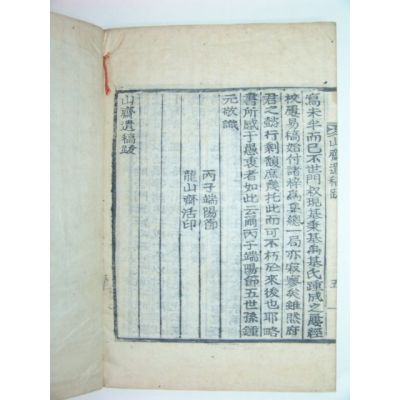 寫未半而已不世門叔現基秉基禹基氏踵成之屢經
校屢易稿始付諸梓為
總一局亦寂寥矣雖然府
君之懿行剩馥庶幾托此而可不朽於來後也耶略
書所感于愚衷者如此云爾丙子端陽節五世孫鍾
元敬識
丙子端陽節
龍山齋活印
山齋遺稿跋
山齋遺稿跋
五